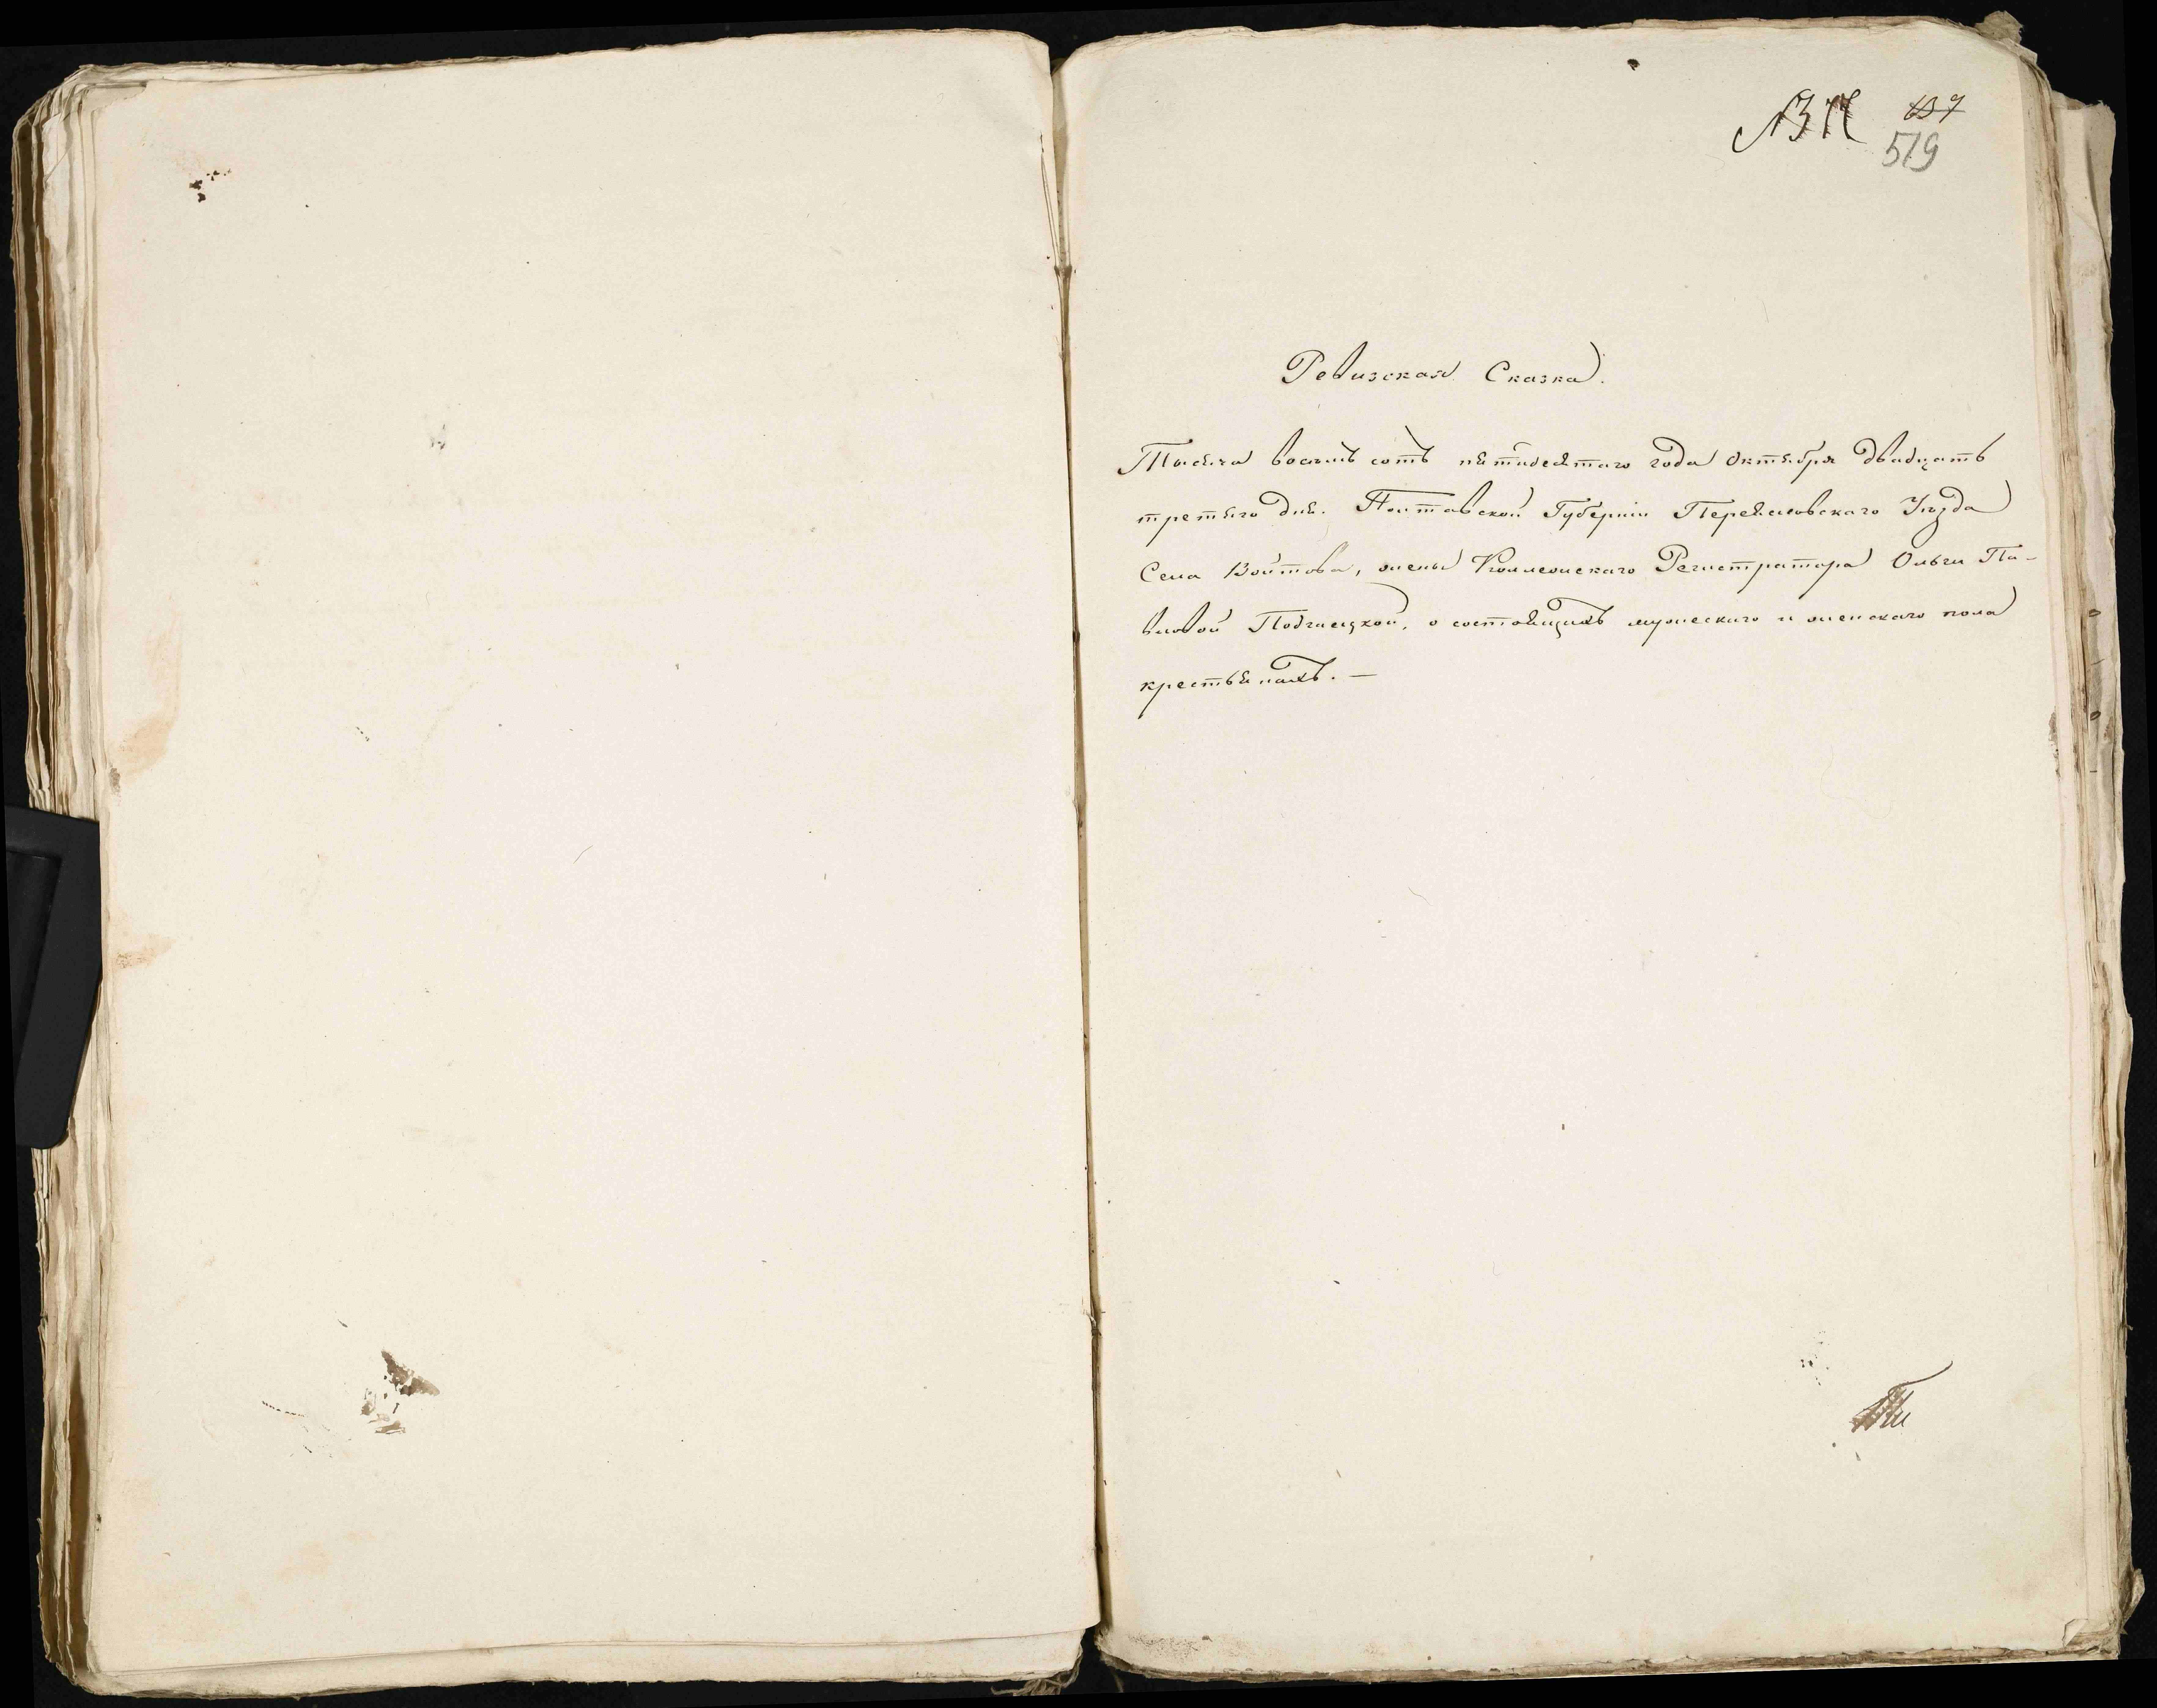 519
Ревизская Сказка.
Тысяча восемь сотъ пятидесятаго года Октября двадцать
третьяго дня. Полтавской Губерніи Переяславскаго Уѣзда
Села Войтова, жены Коллежскаго Регистратора Ольги Па-
вловой Подгаецкой, о состоящихъ мужескаго и женскаго пола
крестьянахъ. —